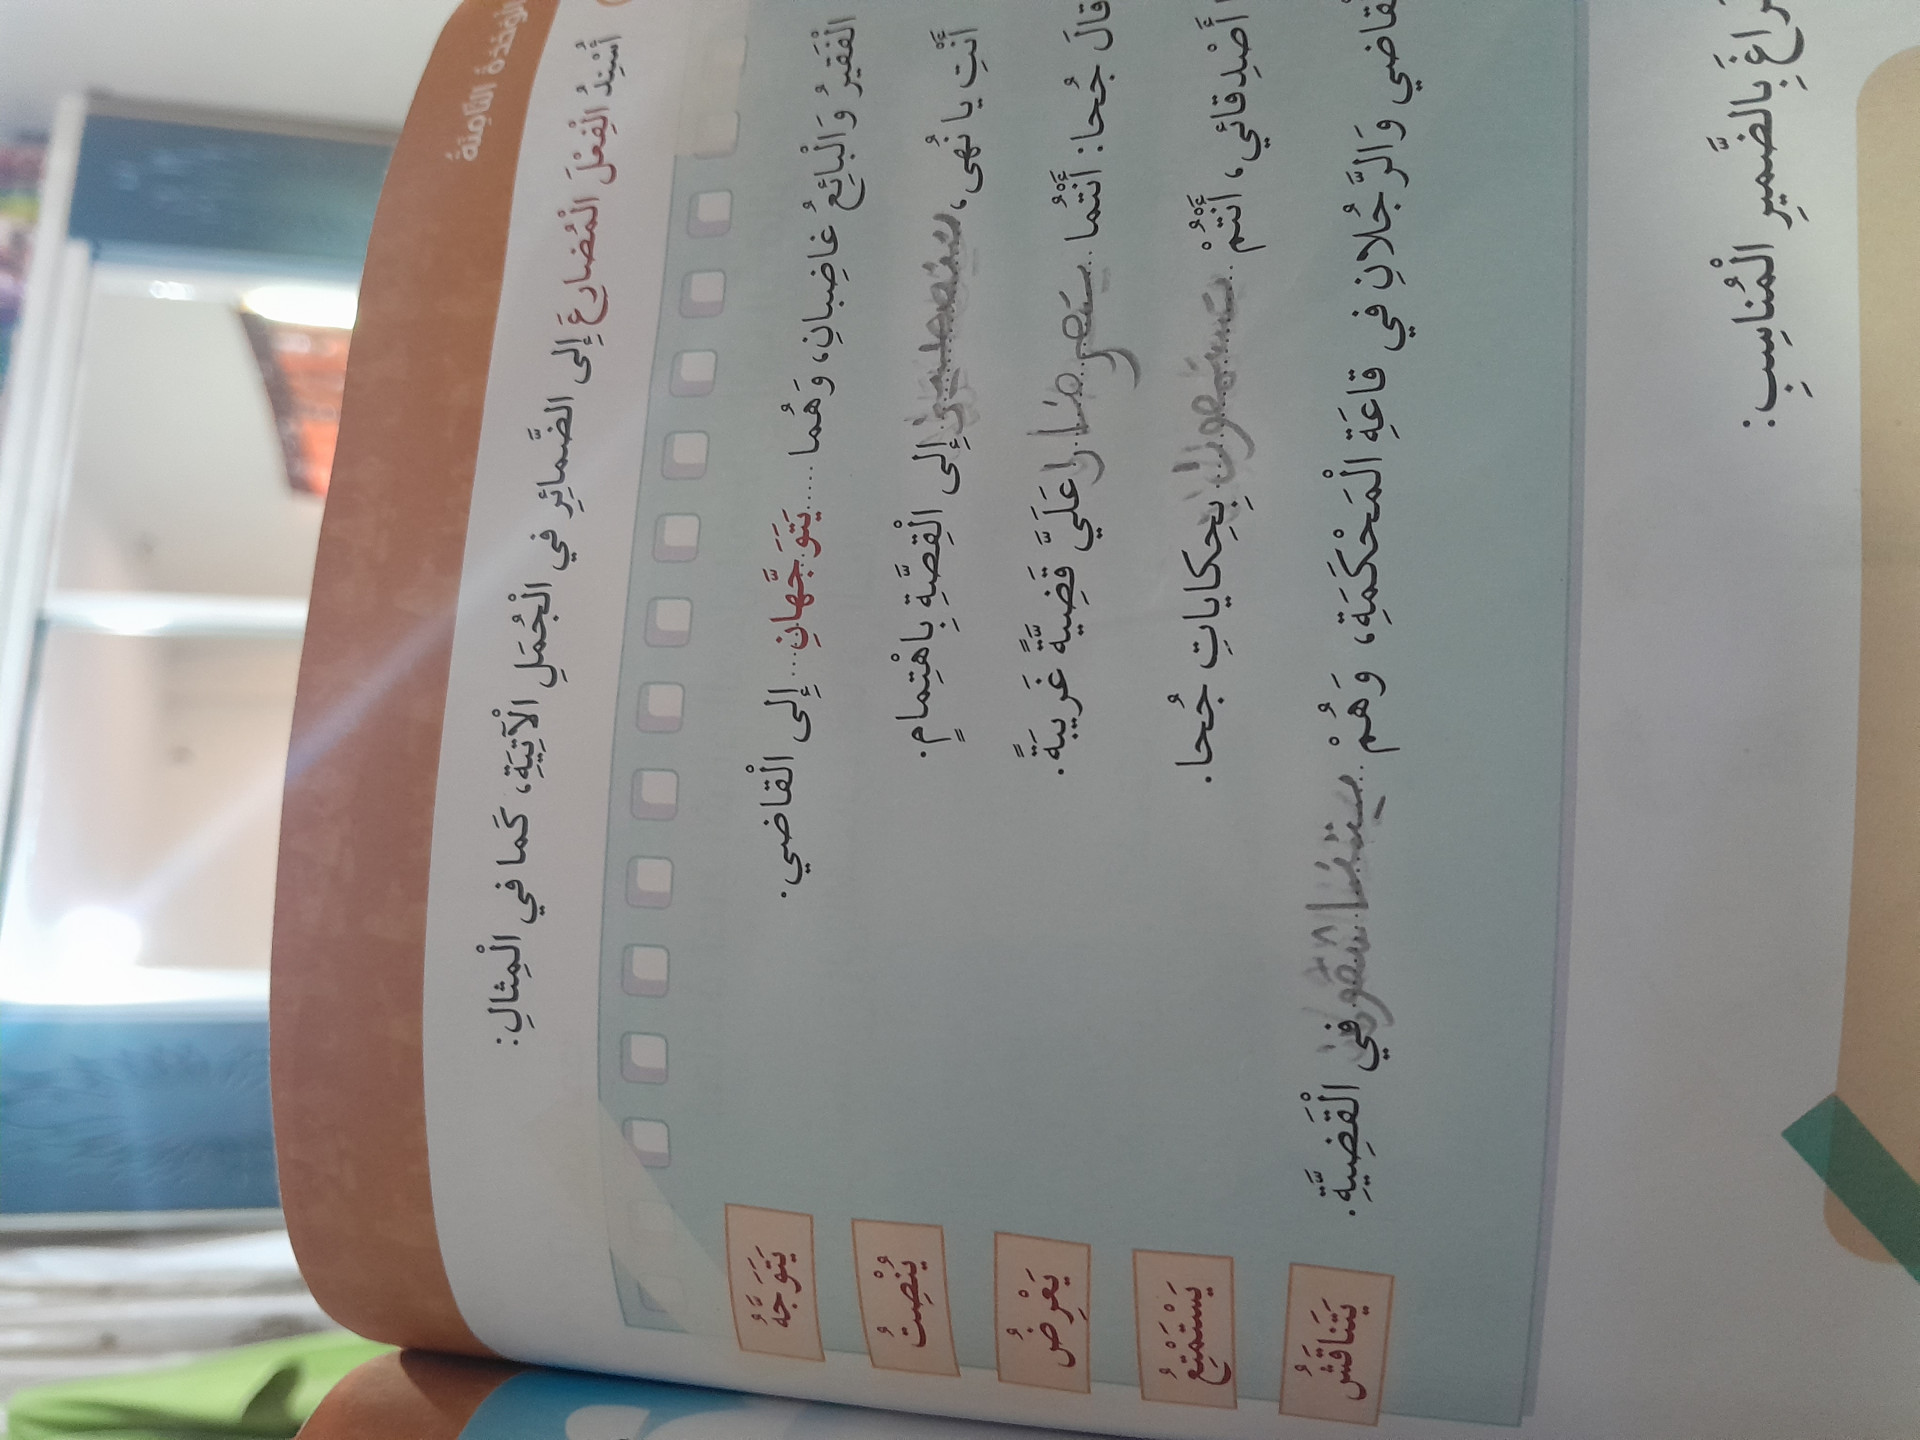 الوحدة الثامنة
أُسْنِدُ الْفِعْلَ الْمُضارِعَ إِلى الضَّمائِرِ في الْجُمَلِ الْآتِيَةِ، كَما في الْمِثالِ:
الْفَقيرُ وَالْبائِعُ غاضِبانِ، وَهُما ..... يَتَوَجَّهانِ ..... إِلى الْقاضي. يَتَوَجَّهُ
أَنْتِ يا نُهى، إِلى الْقِصَّةِ بِاهْتِمامٍ. يُنْصِتُ
قالَ جُحا: أَنْتُما عَلَيَّ قَضِيَّةً غَريبَةً. يَعْرِضُ
أَصْدِقائي، أَنْتُمْ بِحِكاياتِ جُحا. يَسْتَمْتِعُ
وَالرَّجُلانِ في قاعَةِ الْمَحْكَمَةِ، وَهُمْ في الْقَضِيَّةِ. يَتَناقَشُ
بِالضَّميرِ الْمُناسِبِ: